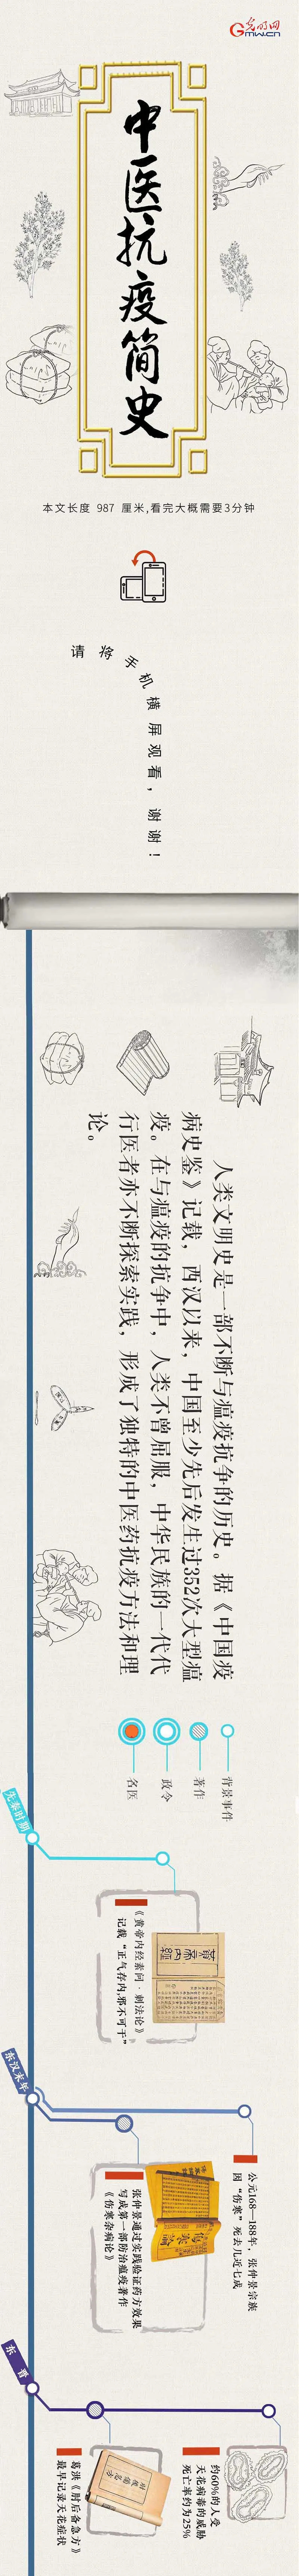 光明网
GMW.CN
中医抗疫简史
本文长度 987 厘米,看完大概需要3分钟
请将手机横屏观看，谢谢！
人类文明史是一部不断与瘟疫抗争的历史。据《中国疫
病史鉴》记载，西汉以来，中国至少先后发生过352次大型瘟
疫。在与瘟疫的抗争中，人类不曾屈服，中华民族的一代代
行医者亦不断探索实践，形成了独特的中医药抗疫方法和理
论。
背景事件
著作
政令
名医
先秦时期
黄帝内经
《黄帝内经素问·刺法论》
记载“正气存内,邪不可干”
东汉末年
公元168—188年，张仲景宗族
因“伤寒”死去几近七成
张仲景通过实践验证药方效果
写成第一部防治瘟疫著作
《伤寒杂病论》
东晋
约60%的人受
天花病毒的威胁
死亡率约为25%
葛洪《肘后备急方》
最早记录天花症状